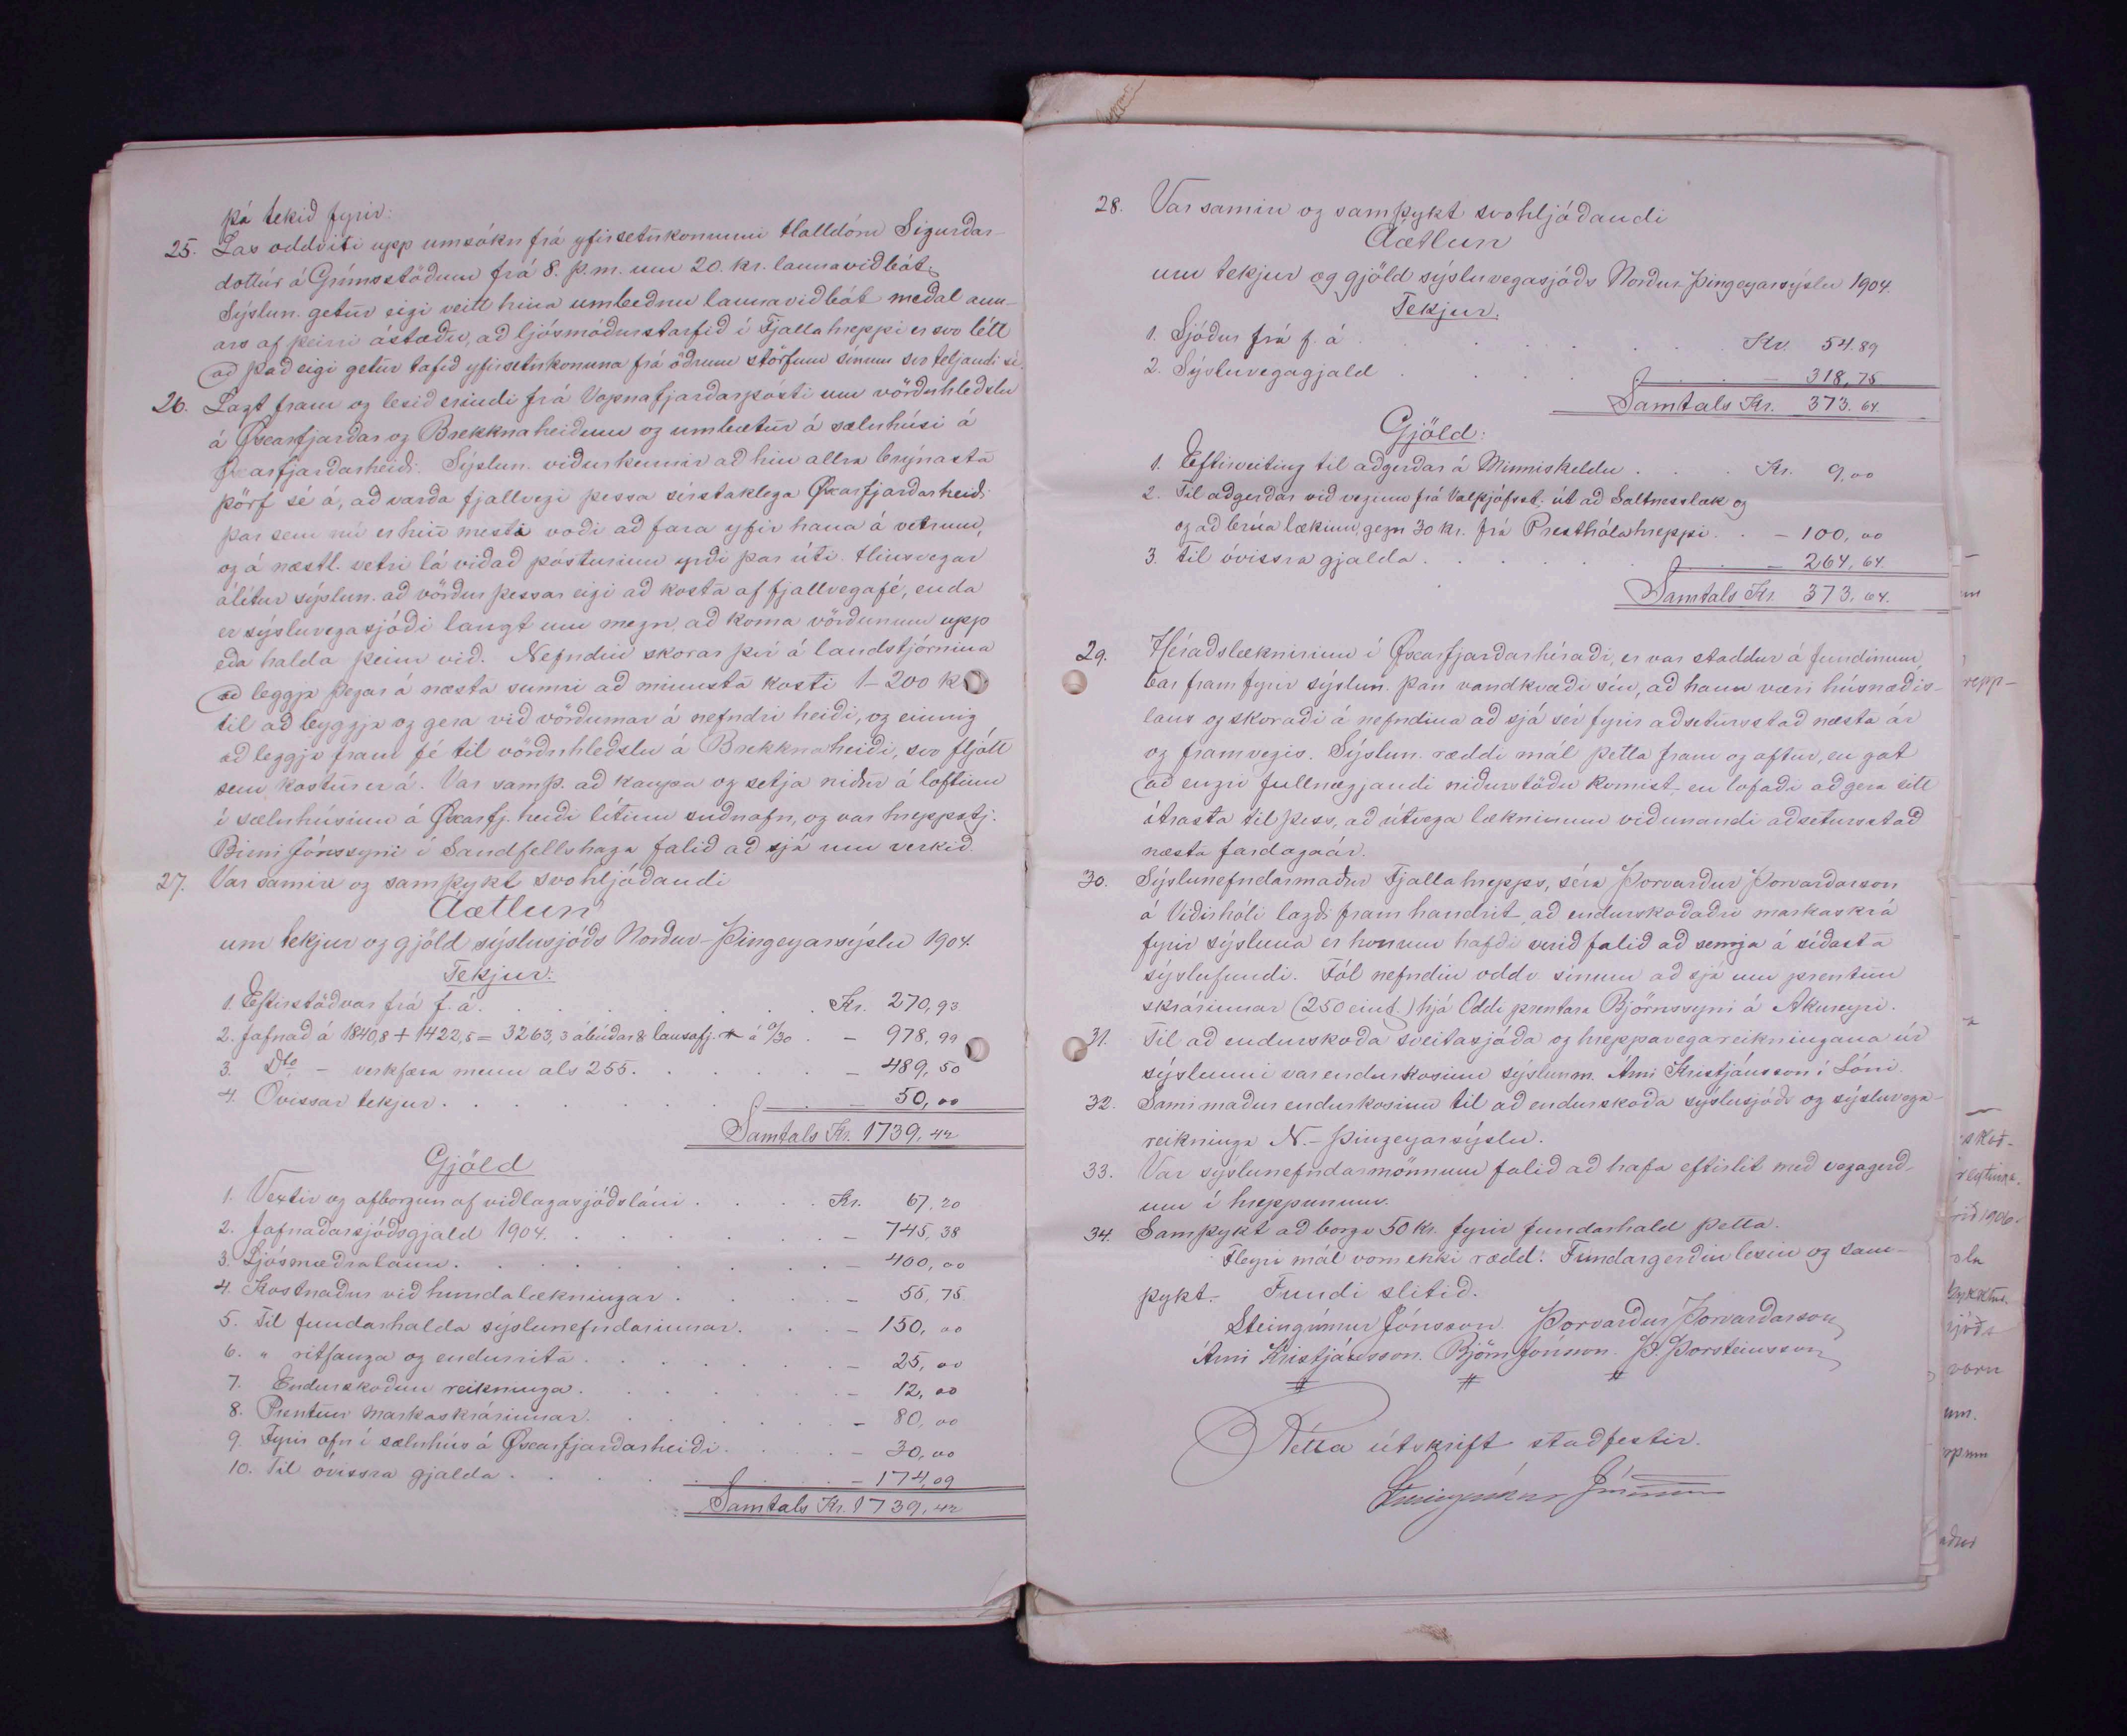 þá tekið fyrir:
25. Las oddviti upp umsókn frá yfirsetukonunni Halldóru Sigurðar-
dóttur á Grímsstöðum frá 8. þ.m. um 20. kr. launaviðbót.
Sýslun. getur eigi veitt hina umbeðnu launaviðbót meðal ann-
ars af þeirri ástæðu, að ljósmóðurstarfið í Fjallahreppi er svo létt
að það eigi getur tafið yfirsetukonuna frá öðrum störfum sínum svo teljandi sé.
26. Lagt fram og lesið erindi frá Vopnafjarðarpósti um vörðuhleðslu
á Øxarfjarðar og Brekknaheiðum og umbætur á sæluhúsi á
Øxarfjarðarheiði. Sýslun. viðurkennir að hin allra brýnasta
þörf sé á, að varða fjallvegi þessa sérstaklega Øxarfjarðarheiði
þar sem nú er hinn mesti voði að fara yfir hana á vetrum,
og á næstl. vetri lá við að pósturinn yrði þar úti. Hinsvegar
álítur sýslun. að vörður þessar eigi að kosta af fjallvegafé, enda
er sýsluvegasjóði langt um megn að koma vörðunum upp
eða halda þeim við. Nefndin skorar því á landstjórnina
að leggja þegar á næsta sumri að minnsta kosti 1-200 kr.
til að byggja og gera við vörðurnar á nefndri heiði, og einnig
að leggja fram fé til vörðuhleðslu á Brekknaheiði, svo fljótt
sem kostur er á. Var samþ. að kaupa og setja niður á loftinu
í sæluhúsinu á Øxarfj. heiði lítinn suðuofn, og var hreppstj.
Birni Jónssyni í Sandfellshaga falið að sjá um verkið.
27. Var samin og samþykt svohljóðandi
Áætlun
um tekjur og gjöld sýslusjóðs Norður-Þingeyarsýslu 1904.
Tekjur:
1. Eftirstöðvar frá f. á. . . . . . . . . Kr. 270,93
2. Jafnað á 1840,8 + 1422,5 = 3263,3 ábúðar & lausafj. á 0/30 . - 978,99
3. Dto - verkfæra menn als 255. . . . . . - 489,50
4. Óvissar tekjur. . . . . . . . - 50,00
Samtals Kr. 1739,42
Gjöld
1. Vextir og afborgun af viðlagasjóðsláni . . . . Kr. 67,20
2. Jafnaðarsjóðsgjald 1904. . . . . . . - 745,38
3. Ljósmæðralaun. . . . . . . . . - 400,00
4. Kostnaður við hundalækningar . . . . - 55,75
5. Til fundarhalda sýslunefndarinnar. . . . - 150,00
6. " ritfanga og endurrita . . . . . . . - 25,00
7. Endurskoðun reikninga. . . . . . . - 12,00
8. Prentun markaskrárinnar. . . . . . . - 80,00
9. Fyrir ofn í sæluhús á Øxarfjarðarheiði. . . . - 30,00
10. Til óvissra gjalda . . . . . . . . - 174,09
Samtals Kr. 1739,42
28. Var samin og samþykt svohljóðandi
Áætlun
um tekjur og gjöld sýsluvegasjóðs Norður-Þingeyarsýslu 1904.
Tekjur.
1. Sjóður frá f. á . . . . . . . . Kr. 54.89
2. Sýsluvegagjald . . . . . . - 318,75
Samtals Kr. 373.64.
Gjöld:
1. Eftirveiting til aðgerðar á Minniskeldu . . . Kr. 9,00
2. Til aðgerðar við veginn frá Valþjófsst. út að Saltnesslæk og
og að brúa lækinn, gegn 30 kr. frá Presthólahreppi. . - 100,00
3. Til óvissra gjalda . . . . . . . - 264,64.
Samtals Kr. 373.64.
29. Héraðslæknirinn í Øxarfjarðarhéraði, er var staddur á fundinum,
bar fram fyrir sýslun. þau vandkvæði sín, að hann væri húsnæðis-
laus og skoraði á nefndina að sjá sér fyrir aðsetursstað næsta ár
og framvegis. Sýslun. ræddi mál þetta fram og aftur, en gat
að engri fullnægjandi niðurstöðu komist, en lofaði að gera sitt
ítrasta til þess, að útvega lækninum viðunandi aðsetursstað
næsta fardagaár.
30. Sýslunefndarmaður Fjallahrepps, séra Þorvarður Þorvarðarson
á Víðirhóli lagði fram handrit að endurskoðaðri markaskrá
fyrir sýsluna er honum hafði verið falið að semja á síðasta
sýslufundi. Fól nefndin oddv. sínum að sjá um prentun
skrárinnar (250 eint.) hjá Oddi prentara Björnssyni á Akureyri.
31. Til að endurskoða sveitasjóða og hreppavegareikningana úr
sýslunni var endurkosinn sýslunm. Árni Kristjánsson í Lóni.
32. Sami maður endurkosinn til að endurskoða sýslusjóðs og sýsluvega-
reikninga N.-Þingeyarsýslu.
33. Var sýslunefndarmönnum falið að hafa eftirlit með vegagerð-
um í hreppunum.
34. Samþykt að borga 50 kr. fyrir fundarhald þetta.
Fleyri mál voru ekki rædd. Fundargerðin lesin og sam-
þykt. Fundi slitið.
Steingrímur Jónsson. Þorvarður Þorvarðarson
Árni Kristjánsson. Björn Jónsson. Þ. Þorsteinsson
Rétta útskrift staðfestir.
Steingrímur Jónsson